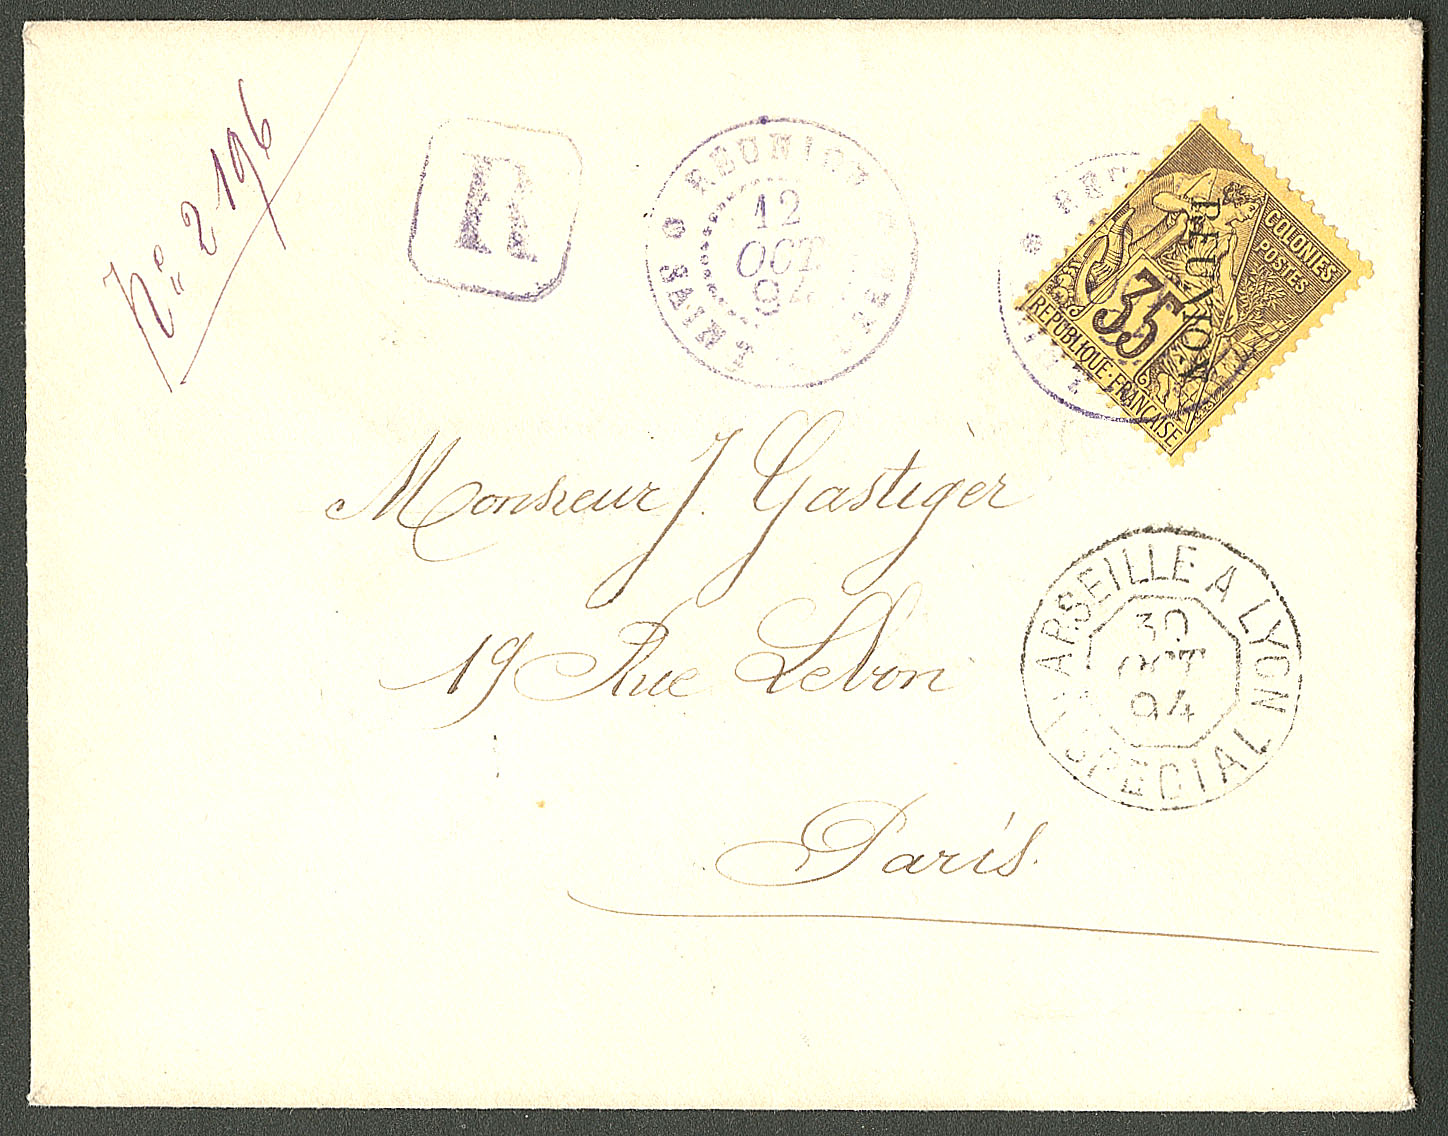 No 2196
R
REUNION
12
OCT
94
SAINT
COLONIES
POSTES
REUNION
35
REPUBLIQUE·FRANCAISE
Monsieur J. Gastiger
19 Rue Lebon
Paris.
MARSEILLE A LYON
30
OCT
94
SPECIAL